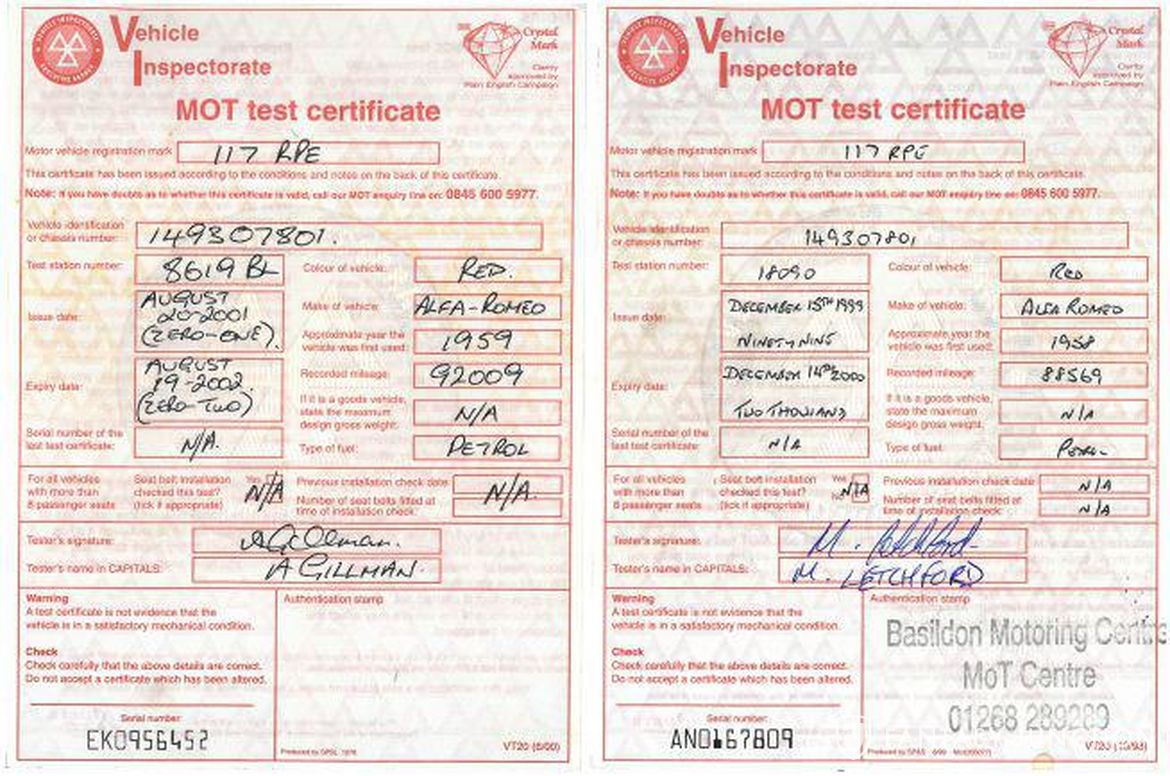 Vehicle
Inspectorate
Crystal
Mark
Clarity
approved by
Plain English Campaign
MOT test certificate
Motor vehicle registration mark 117 RPE
This certificate has been issued according to the conditions and notes on the back of this certificate.
Note: If you have doubts as to whether this certificate is valid, call our MOT enquiry line on: 0845 600 5977.
Vehicle identification
or chassis number: 149307801.
Test station number: 8619 BL
Colour of vehicle: RED.
Issue date: AUGUST
20-2001
(ZERO-ONE).
Make of vehicle: ALFA-ROMEO
Approximate year the
vehicle was first used: 1959
Expiry date: AUGUST
19-2002.
(ZERO-TWO)
Recorded mileage: 92009
If it is a goods vehicle,
state the maximum
design gross weight: N/A
Serial number of the
last test certificate: N/A.
Type of fuel: PETROL
For all vehicles
with more than
8 passenger seats
Seat belt installation
checked this test?
(tick if appropriate)
Yes
N/A
Previous installation check date
Number of seat belts fitted at
time of installation check:
N/A.
Tester's signature: A Gillman.
Tester's name in CAPITALS: A GILLMAN.
Warning
A test certificate is not evidence that the
vehicle is in a satisfactory mechanical condition.
Check
Check carefully that the above details are correct.
Do not accept a certificate which has been altered.
Authentication stamp
Serial number:
EK0956452
VT20 (6/00)
Vehicle
Inspectorate
Crystal
Mark
Clarity
approved by
Plain English Campaign
MOT test certificate
Motor vehicle registration mark 117 RPE
This certificate has been issued according to the conditions and notes on the back of this certificate.
Note: If you have doubts as to whether this certificate is valid, call our MOT enquiry line on: 0845 600 5977.
Vehicle identification
or chassis number: 149307801
Test station number: 18090
Colour of vehicle: RED
Issue date: DECEMBER 15TH 1999
NINETY NINE
Make of vehicle: ALFA ROMEO
Approximate year the
vehicle was first used: 1958
Expiry date: DECEMBER 14th 2000
TWO THOUSAND
Recorded mileage: 88569
If it is a goods vehicle,
state the maximum
design gross weight: N/A
Serial number of the
last test certificate: N/A
Type of fuel: PETROL
For all vehicles
with more than
8 passenger seats
Seat belt installation
checked this test?
(tick if appropriate)
Yes
No
N/A
Previous installation check date N/A
Number of seat belts fitted at
time of installation check: N/A
Tester's signature: M. Letchford
Tester's name in CAPITALS: M. LETCHFORD
Warning
A test certificate is not evidence that the
vehicle is in a satisfactory mechanical condition.
Check
Check carefully that the above details are correct.
Do not accept a certificate which has been altered.
Authentication stamp
Basildon Motoring Centre
MoT Centre
01268 289289
Serial number:
AN0167809